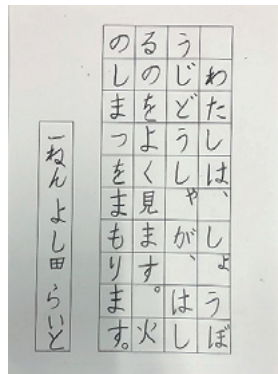 わたしは、しょうぼ
うじどうしゃが、はし
るのをよく見ます。火
のしまつをまもります。
一ねん よし田 らいと